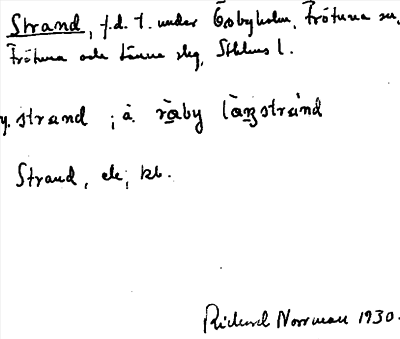 Strand, f.d. t. under Broby­holm, Frötuna sn,
Frötuna och Länna slg, Sthlms l.
y. strand ; å råby låŋstrand
Strand, ek, kb.
Richard Norrman 1930.